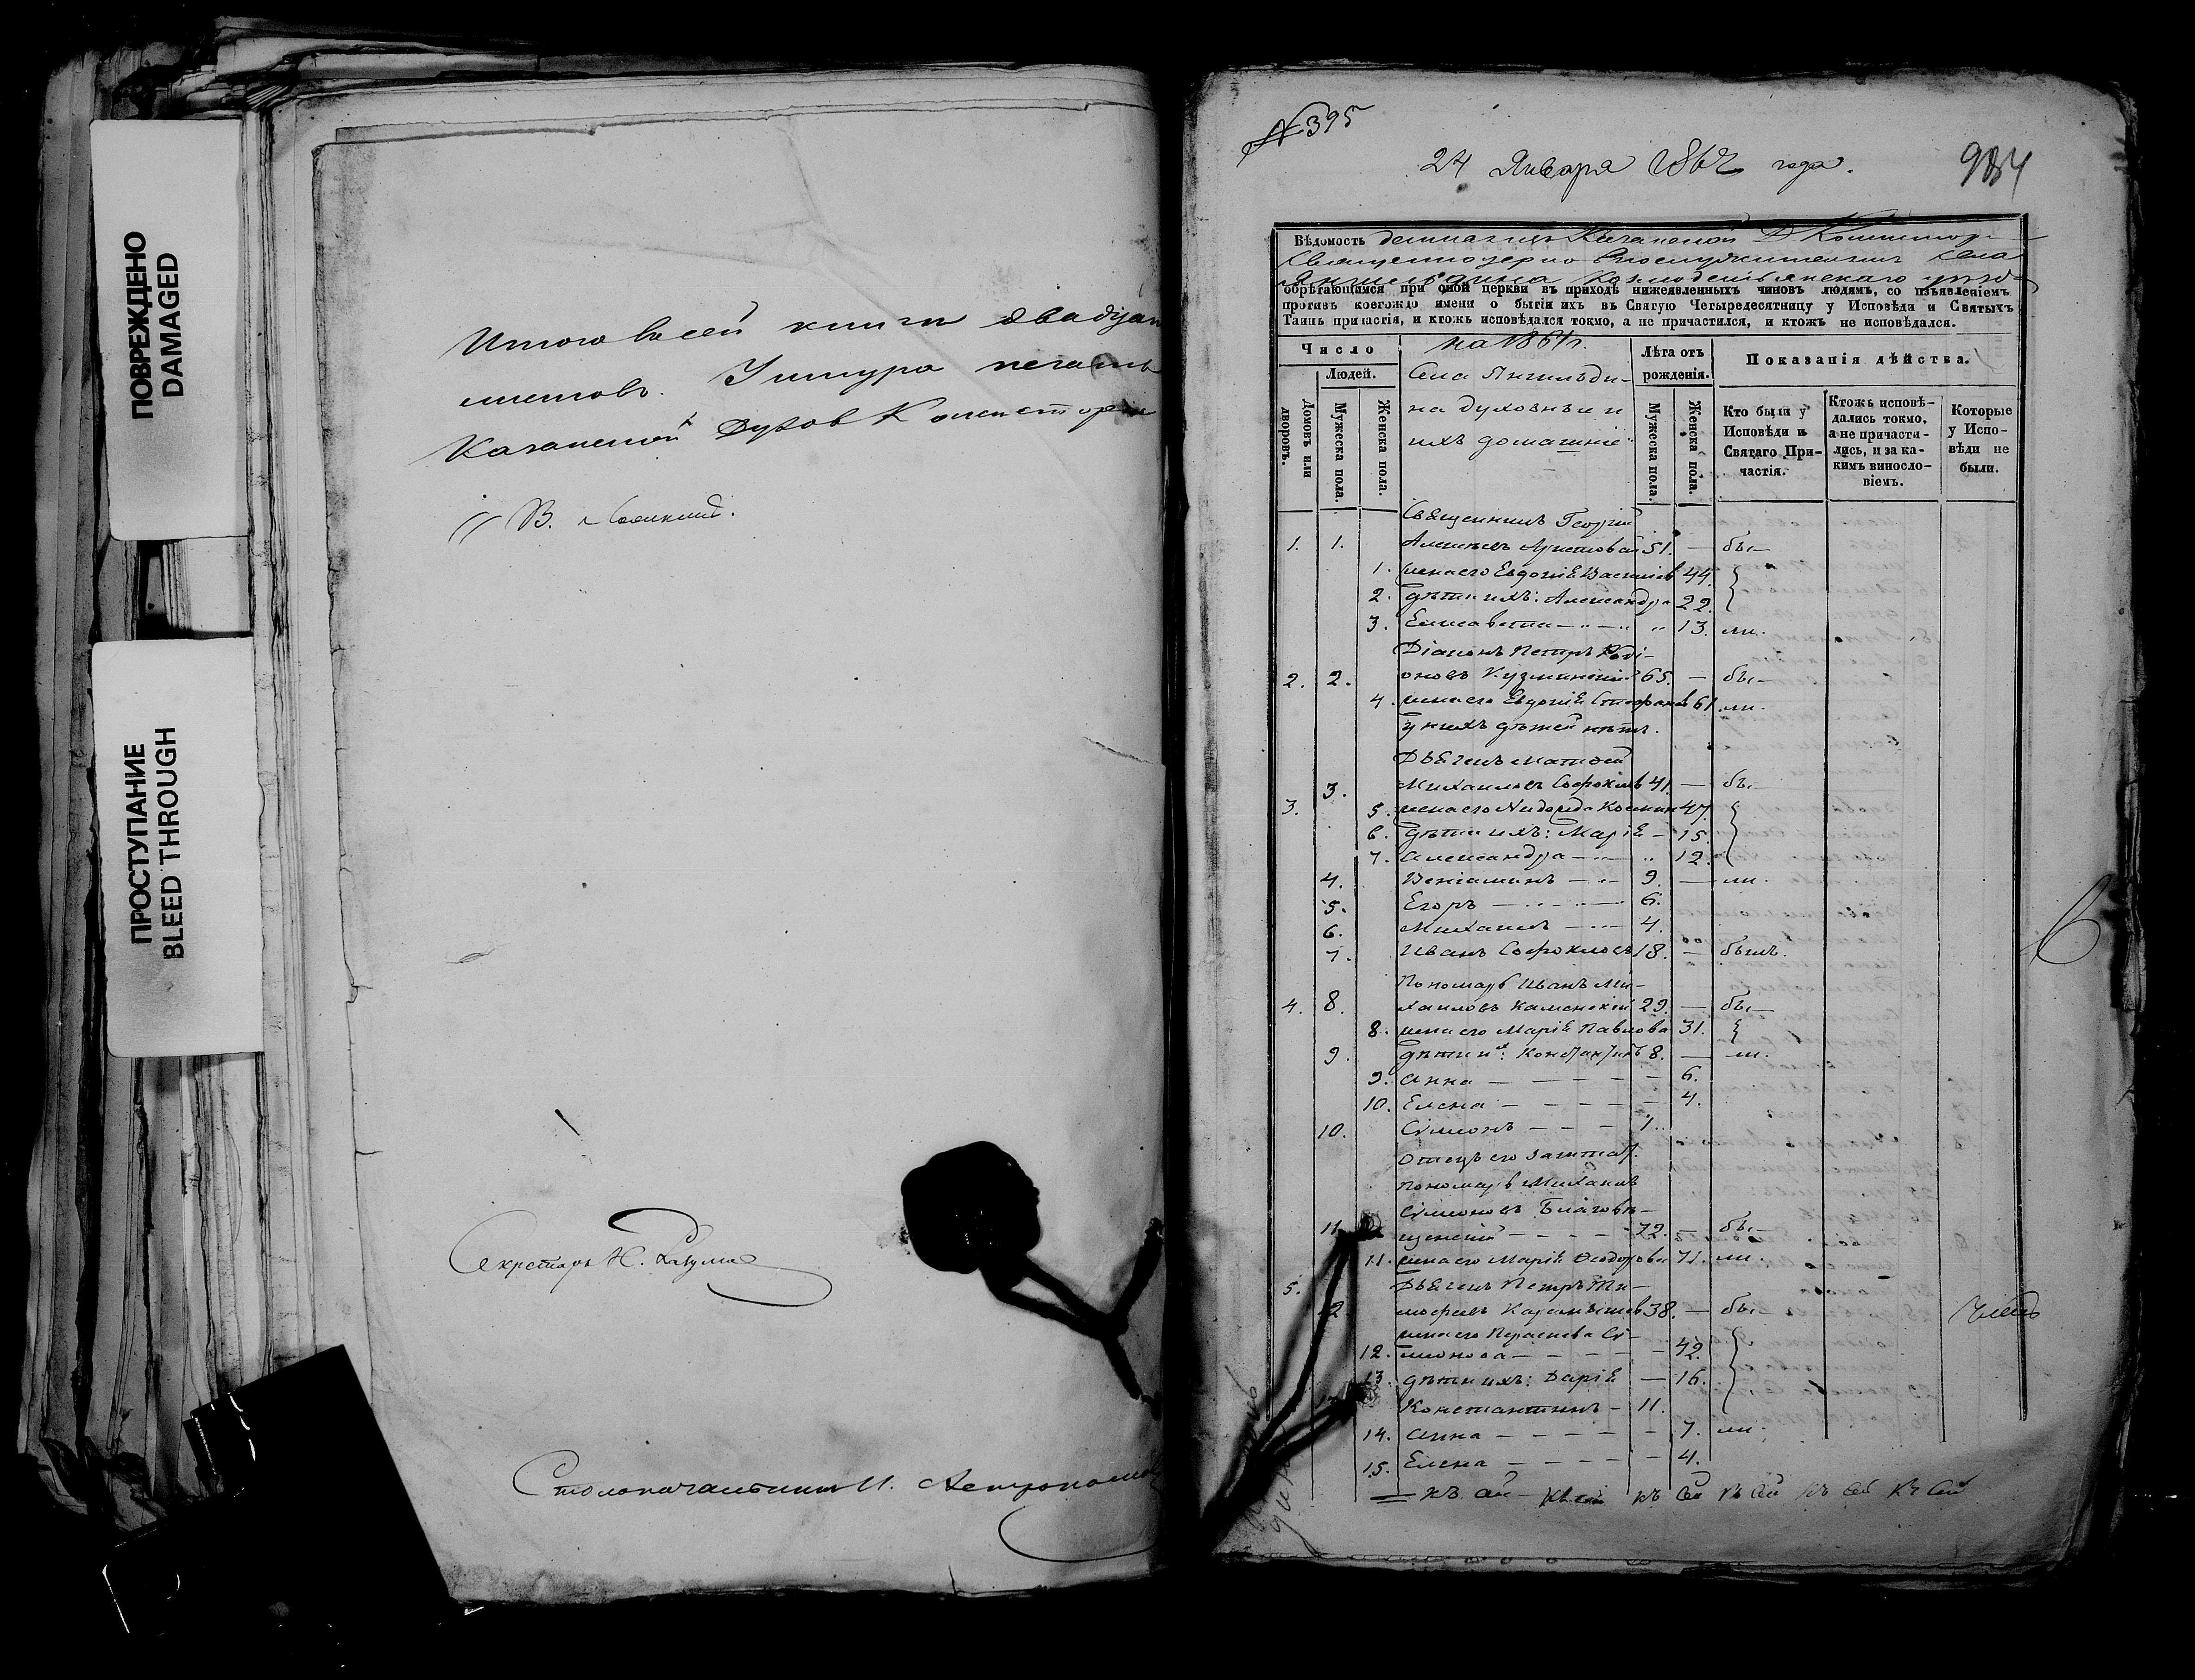 ПОВРЕЖДЕНО
DAMAGED
ПРОСТУПАНИЕ
BLEED THROUGH
Итого в сей книге двадцать
листовъ. У шнура печать
Казанской Духов Консистори
В.
Секретарь Н.
Столоначальникъ И.
№ 395
24 Января 1862 года.
984
Вѣдомость Казанской Д Консистор
села
Козмодемьянскаго уѣзд
обрѣтающимся при оной церкви въ приходѣ нижеявленныхъ чиновъ людямъ, со изъявленіемъ
противъ коегождо имени о бытіи ихъ въ Святую Четыредесятницу у Исповѣди и Святыхъ
Таинъ причастія, и ктожъ исповѣдался токмо, а не причастился, и ктожъ не исповѣдался.
Число
на 1861 г.
Лѣта отъ рожденія.
Показанія дѣйства.
Людей.
Домовъ или дворовъ.
Мужеска пола.
Женска пола.
Села Янгильди-
на духовные и
ихъ домашніе
Мужеска пола.
Женска пола.
Кто были у Исповѣди и Святаго При-частія.
Ктожъ исповѣ-дались токмо, а не причасти-лись, и за ка-кимъ виносло-віемъ.
Которые у Испо-вѣди не были.
Священникъ Георгій
1. 1. Алексѣевъ 51. — бы-
1. жена его Евдокія Васильев 44.
2. дѣти ихъ: Александра 22.
3. Елисавета 13. ли.
Діаконъ Петръ Роді-
2. 2. оновъ Кузминскій 65. — бы-
4. жена его Евдокія Стефанов 61. ли.
У нихъ дѣтей нѣтъ.
Дьячекъ Матвей
3. Михаиловъ Софокловъ 41. — бы-
3. 5. жена его 47.
6. дѣти ихъ: Марія — 15.
7. Александра — 12.
4. Веніаминъ — 9. — ли.
5. Егоръ — 6.
6. Михаилъ — 4.
7. Иванъ Софокловъ 18. — былъ.
Пономарь Иванъ Ми-
4. 8. хаиловъ Каменскій 29. — бы-
8. жена его Марія Павлова 31.
9. дѣти их: Константинъ 8. — ли.
9. Анна — 6.
10. Елена — 4.
10. Сѵмеонъ — 1.
Отецъ его заштат.
пономарь Михаилъ
Сѵмеоновъ Благовѣ-
11. щенскій — 72. — бы-
11. жена его Марія Ѳеодорова 71. ли.
5. Дьячекъ Петръ Ти-
моѳеевъ 38. — бы-
жена его Параскева Сѵ-
12. меонова — 42.
13. дѣти ихъ: Дарія — 16.
Константинъ — 11.
14. Анна — 7. ли.
15. Елена — 4.